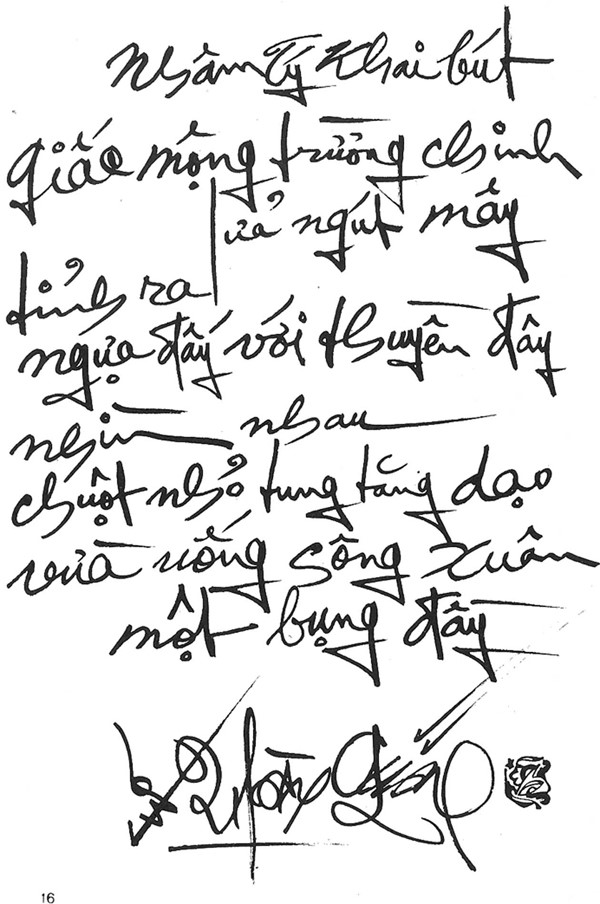 Nhâm Tý Khai bút
Giấc mộng trường chinh
lửa ngút mây
tỉnh ra
ngựa đấy với thuyền đây
nhìn nhau
chuột nhỏ tung tăng dạo
vừa uống sông xuân
một bụng đầy
Vũ Hoàng Chương
16